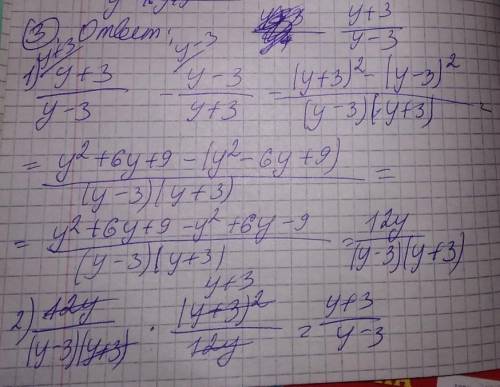 ③. Ответ: (y+3)/(y-3)
y+3 y-3
1) (y+3)/(y-3) - (y-3)/(y+3) = ((y+3)² - (y-3)²)/((y-3)(y+3)) =
= (y²+6y+9-(y²-6y+9))/((y-3)(y+3)) =
= (y²+6y+9-y²+6y-9)/((y-3)(y+3)) = 12y/((y-3)(y+3))
y+3
2) 12y/((y-3)(y+3)) · (y+3)²/12y = (y+3)/(y-3)